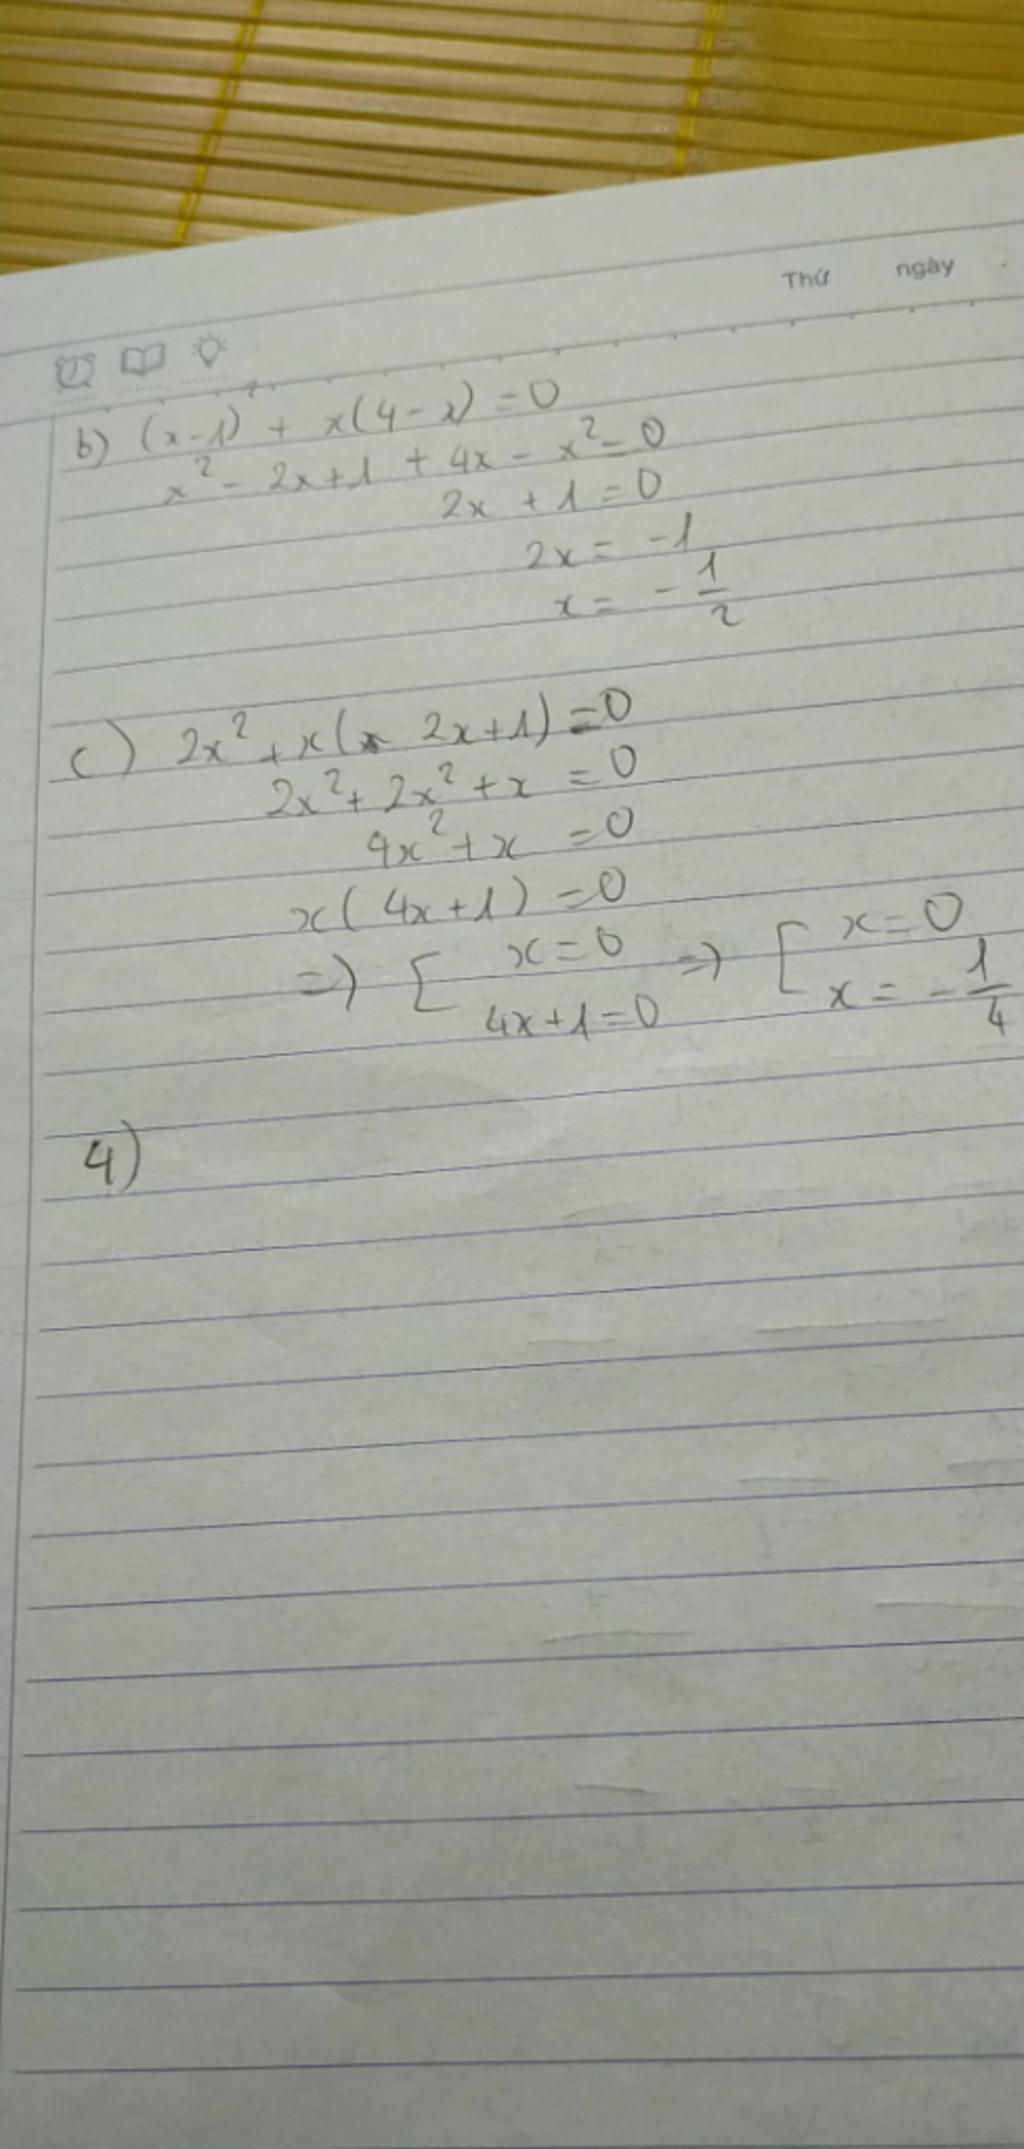 Thứ ngày
b) (x-1)² + x(4-x) = 0
x² - 2x+1 + 4x - x² = 0
2x + 1 = 0
2x = -1
x = - 1/2
c) 2x² + x( 2x+1) = 0
2x² + 2x² + x = 0
4x² + x = 0
x( 4x+1) = 0
=> [ x=0 => [ x=0
4x+1=0 x = - 1/4
4)